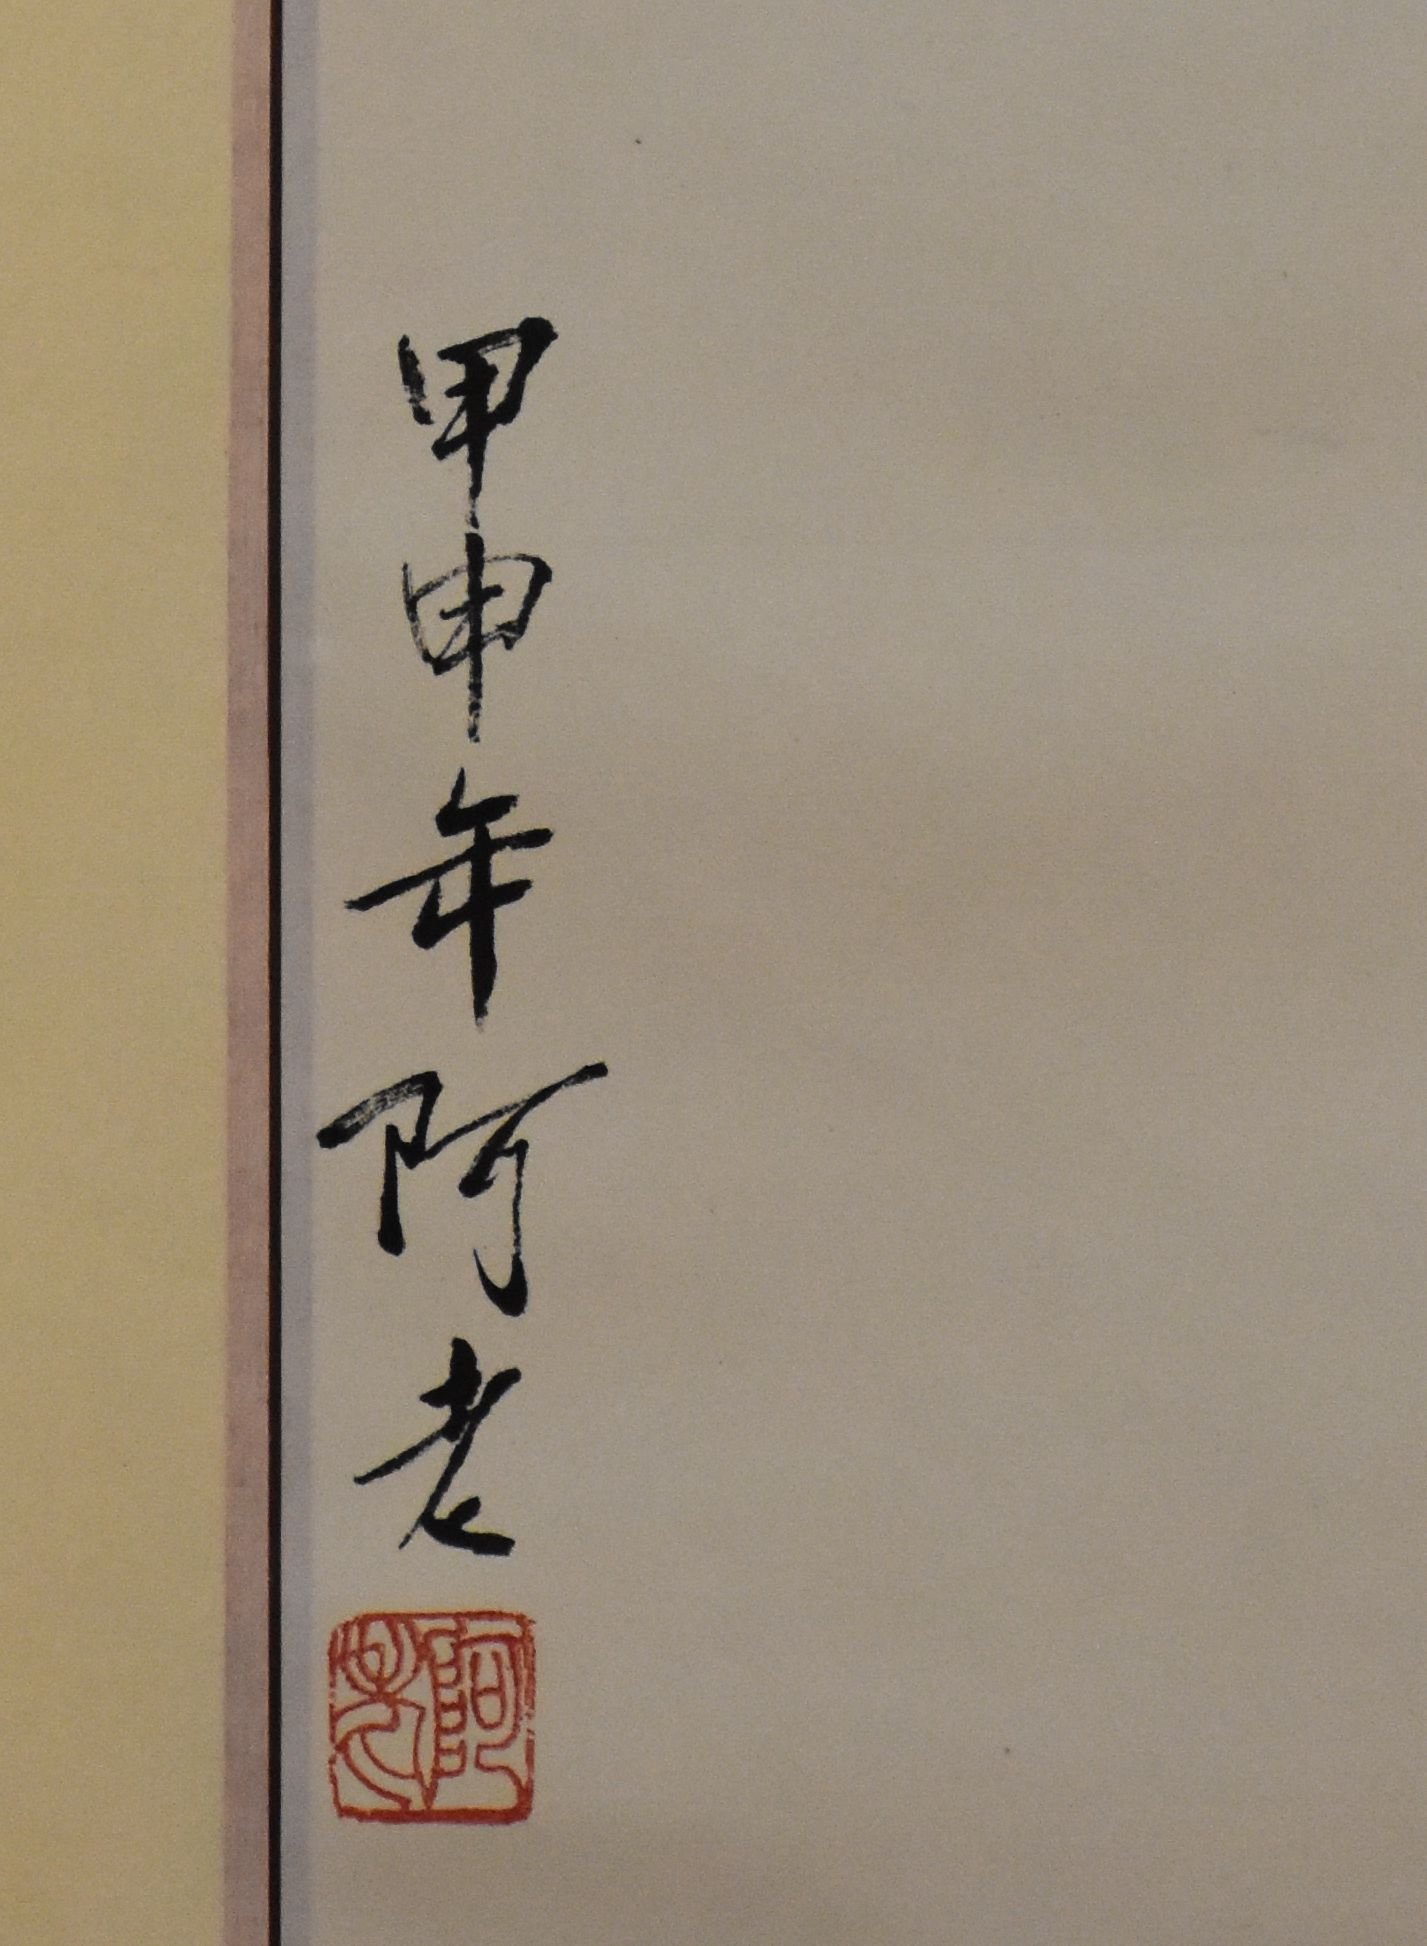 甲申年阿老
阿老